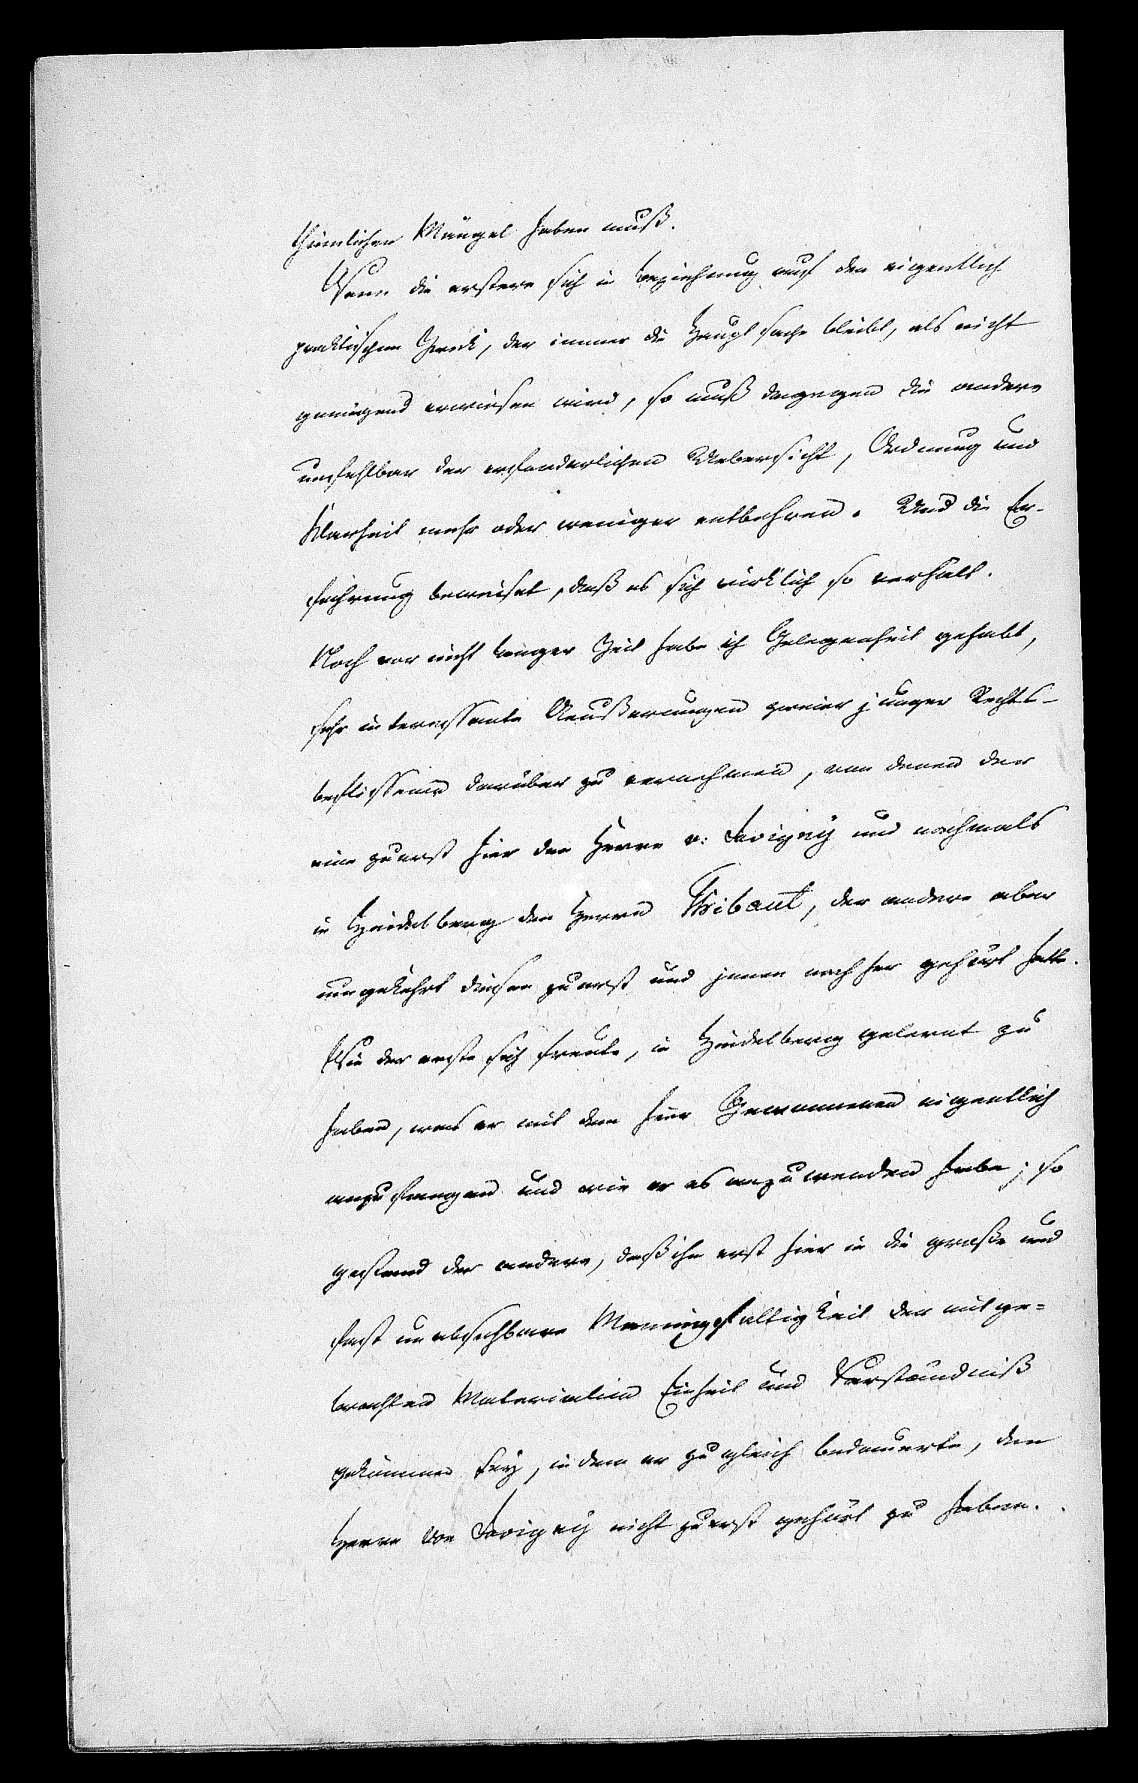 thümlichen Mängel haben muß.
Wenn die erstere sich in Beziehung auf den eigentlich
praktischen Zweck, der immer die Hauptsache bleibt, als nicht
genügend erweisen wird, so muß dagegen die andere
unfehlbar der erforderlichen Uebersicht, Ordnung und
Klarheit mehr oder weniger entbehren. Und die Er-
fahrung beweiset, daß es sich wirklich so verhält.
Noch vor nicht langer Zeit habe ich Gelegenheit gehabt,
sehr interessante Aeußerungen zweier junger Rechts-
beflissenen darüber zu vernehmen, von denen der
eine zuerst hier den Herrn v: Savigny und nachmals
in Heidelberg den Herrn Thibaut, der andere aber
umgekehrt diesen zuerst und jenen nachher gehört hatte.
Wie der erste sich freute, in Heidelberg gelernt zu
haben, was er mit dem hier Gewonnenen eigentlich
anzufangen und wie er es anzuwenden habe; so
gestand der andere, daß ihm erst hier in die große und
fast unabsehbare Mannigfaltigkeit der mitge-
brachten Materialien Einheit und Verständniß
gekommen sey, indem er zugleich bedauerte, den
Herrn von Savigny nicht zuerst gehört zu haben.